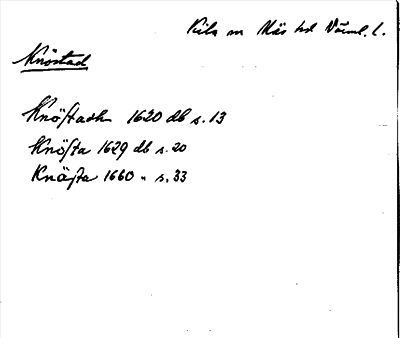 Kila sn Näs hd Värml. l.
Knöstad
Knöstadh 1620 db s. 13
Knösta 1629 db s. 20
Knästa 1660 " s. 33